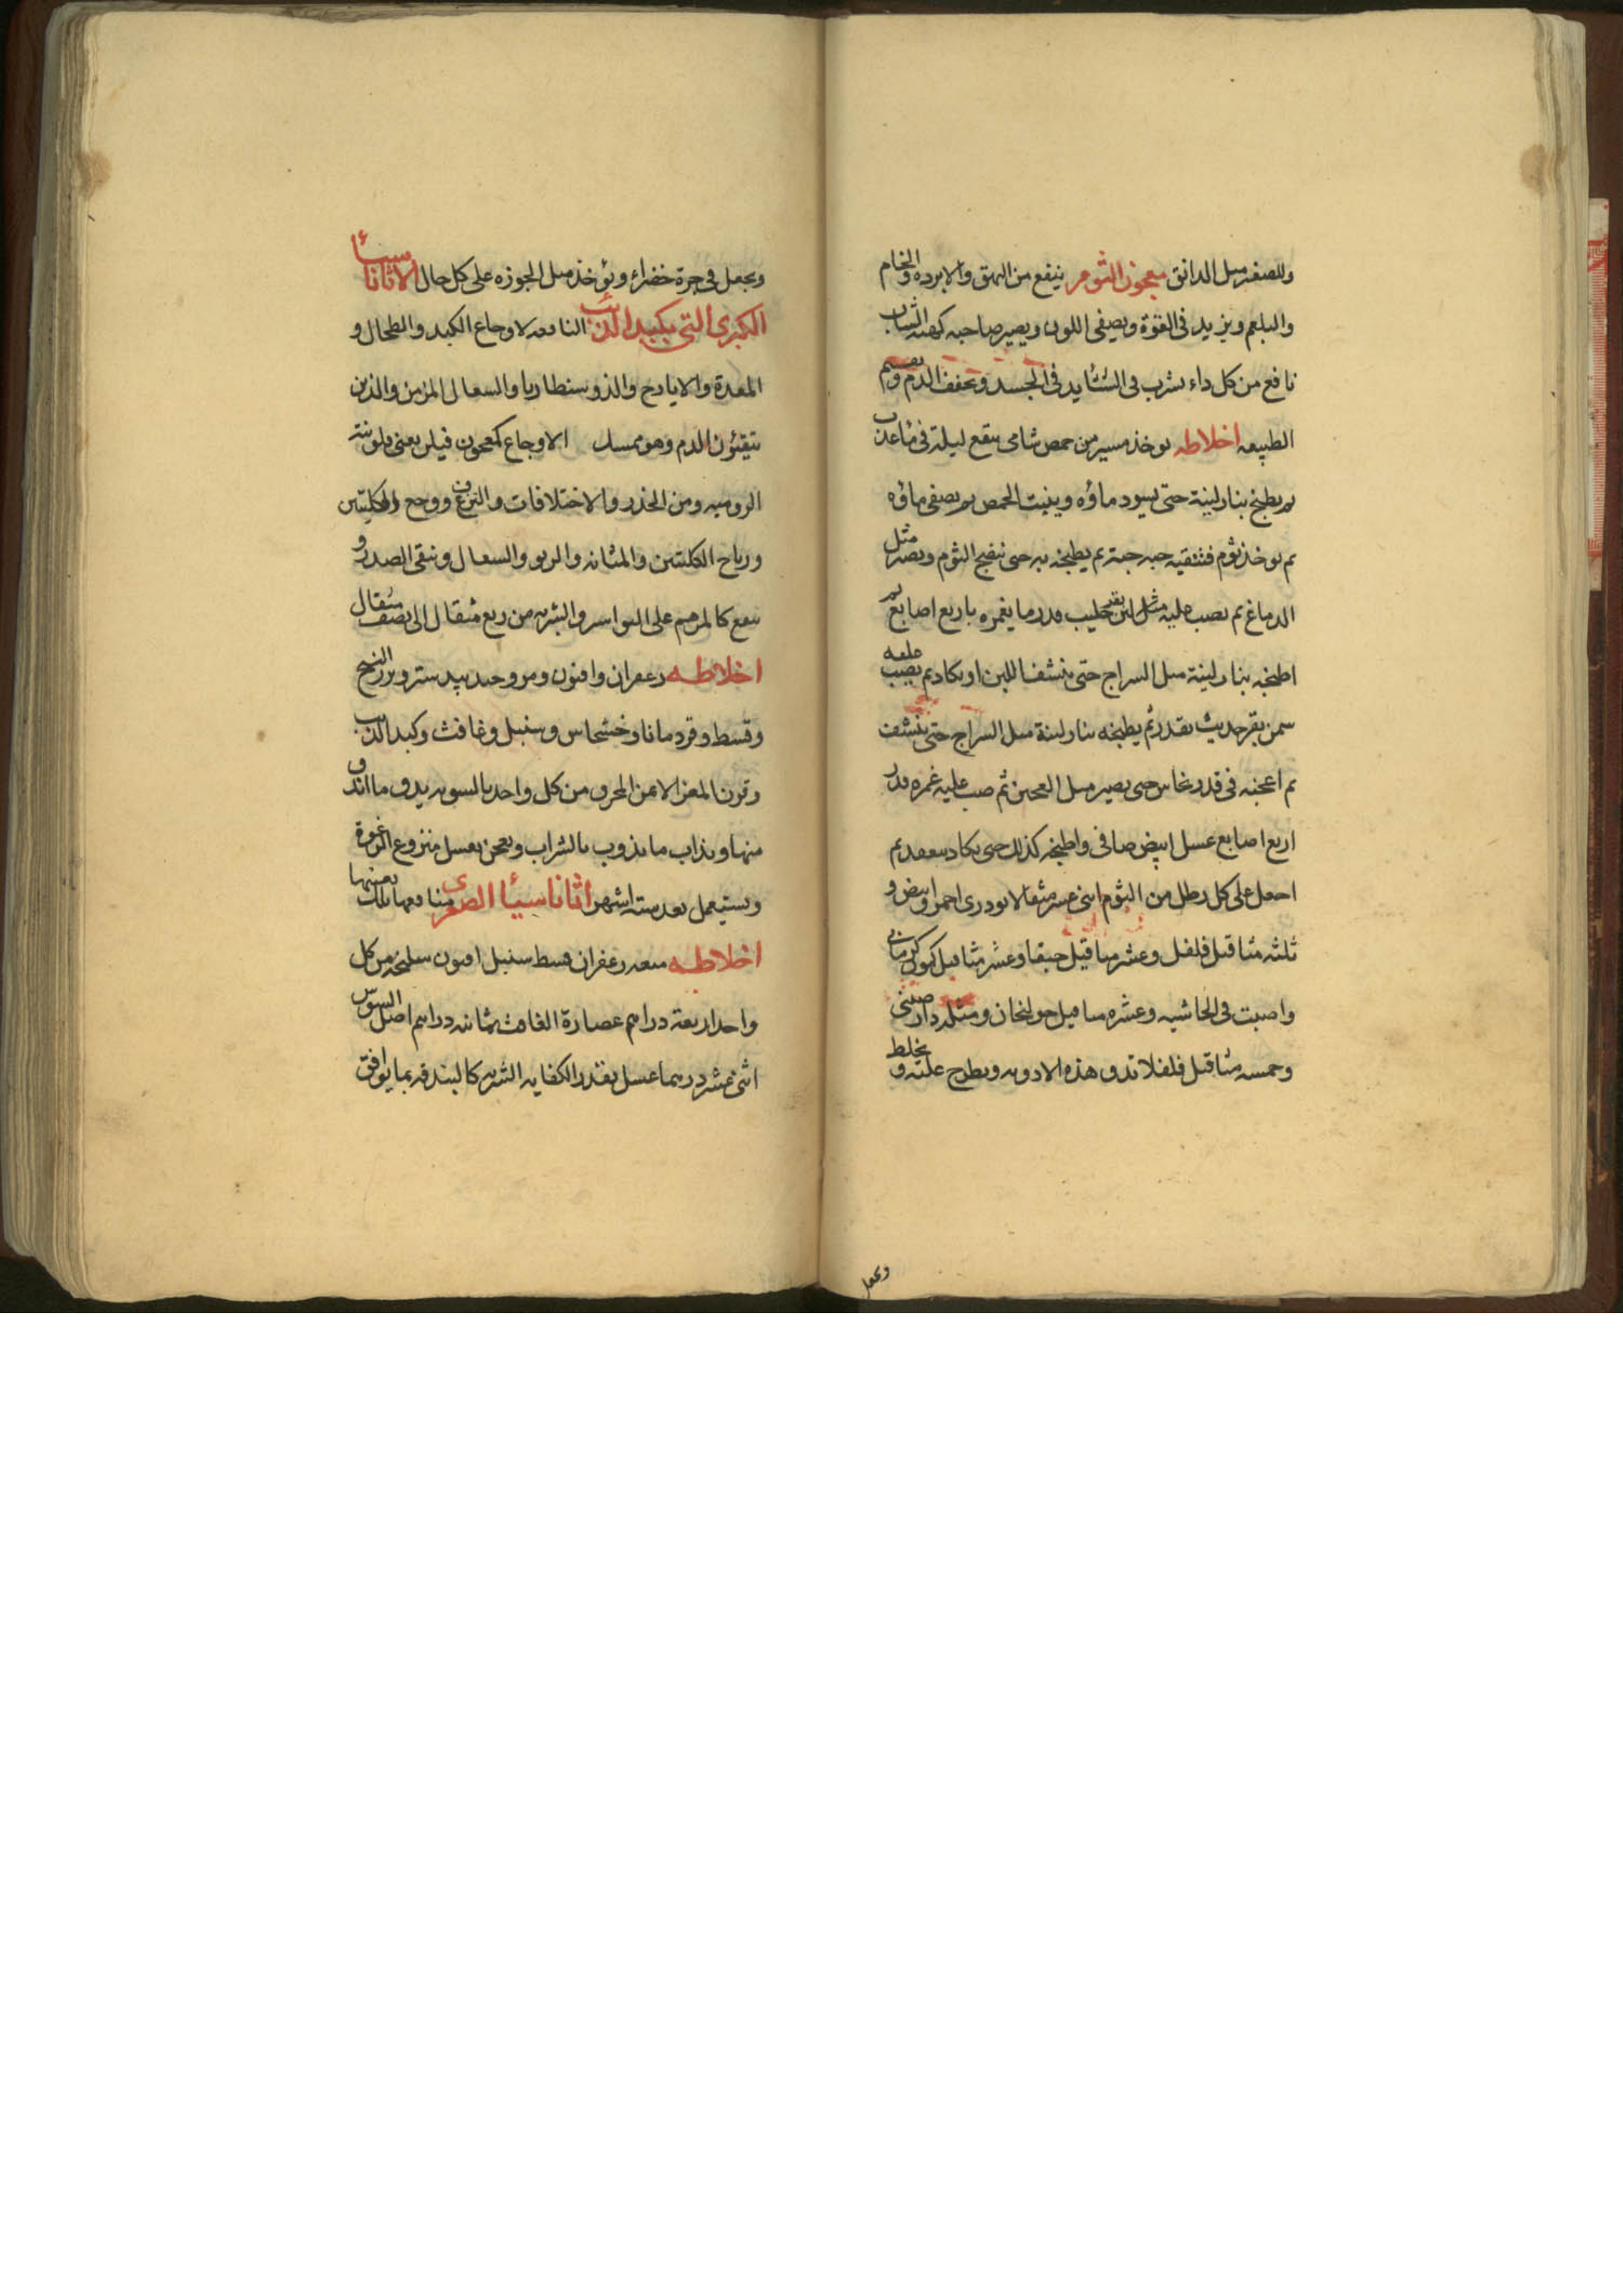 وللصغير مثل الدانق معجون الثوم ينفع من البهق والابرده والخام
والبلغم ويزيد في القوة ويصفى اللون ويصير صاحبه كهيئة الشاب
نافع من كل داء يشرب في الشتا يزيد في الجسد ويخفف الدم ويصحح
الطبيعه اخلاطه يوخذ من حمص شامى ينقع ليلة في ماء عذب
ثم يطبخ بنار لينة حتى يسود ماؤه وينبت الحمص ثم يصفى ماؤه
ثم يوخذ ثوم فتنقيه حبه حبة ثم يطبخه به حتى ينضج الثوم ويصير مثل
الدماغ ثم يصب عليه مثل لبن بقر حليب قدر ما يغمره باربع اصابع ثم
اطبخه بنار لينة مثل السراج حتى ينشف اللبن او يكاد ثم يصب عليه
سمن بقر حديث بقدر ثم يطبخه بنار لينة مثل السراج حتى ينشف
ثم اعجنه في قدر نحاس حتى يصير مثل العجين ثم صب عليه غمره قدر
اربع اصابع عسل ابيض صافى واطبخه كذلك حتى يكاد ينعقد ثم
اجعل على كل رطل من الثوم اثنى عشر مثقالا تودرى احمر وابيض و
ثلثه مثاقيل فلفل وعشر مثاقيل حبقا وعشر مثاقيل كمون كرمانى
واصبت في الحاشيه وعشره مثاقيل خولنجان ومثله دارصينى
وخمسه مثاقيل فلفلا تدق هذه الادويه ويطرح عليه ويخلط
ويجعل
ويجعل في جرة خضراء ويؤخذ مثل الجوزه على كل حال الاثاناسيا
الكبرى التي بكبد الذئب النافعه لاوجاع الكبد والطحال و
المعدة والايادح والذوسنطاريا والسعال المزمن والذين
يتقيئون الدم وهو يمسك الاوجاع كمعجون فيلن يعنى فلونيته
الروميه ومن الخدر والاختلافات والنزف ووجع والكليتين
ورياح الكليتين والمثانه والربو والسعال وينقى الصدر و
ينفع كالمرهم على البواسير والشربه من ربع مثقال الى نصف مثقال
اخلاطه زعفران وافيون ومر وجندبيدستر وبزر البنج
وقسط وقردمانا وخشخاش وسنبل وغافث وكبد الذئب
وقرن المعز الايمن المحرق من كل واحد بالسويه يدق ما اندق
منها ويذاب ما يذوب بالشراب ويعجن بعسل منزوع الرغوة
ويستعمل بعد سته اشهر اثاناسيئا الصغرى منافعها تلك بعينها
اخلاطه ميعه زعفران قسط سنبل افيون سليخه من كل
واحد اربعة دراهم عصارة الغافث ثمانيه دراهم اصل السوس
اثنى عشر درهما عسل بقدر الكفايه الشربه كالبندقه بما يوافق